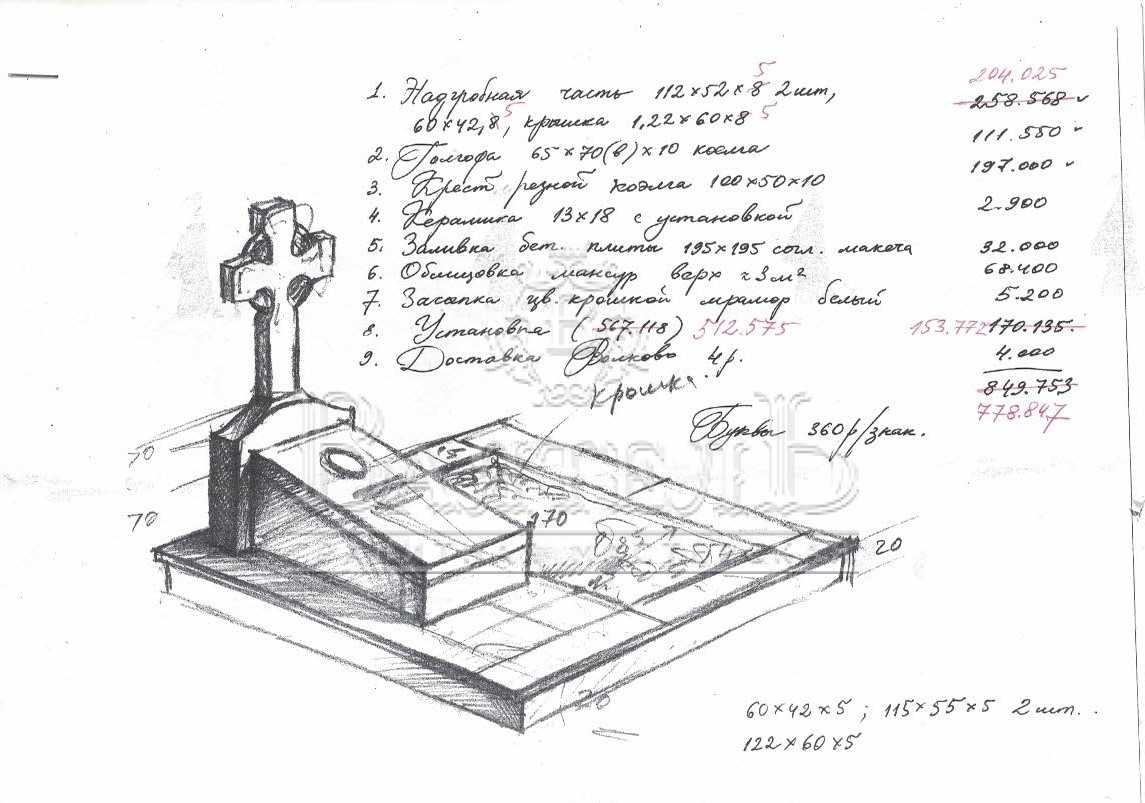 204.025
1. Надгробная часть 112×52×8 5 2шт, 258.568
60×42,8 5, крышка 1,22×60×8 5 111.550
2. Голгофа 65×70(в)×10 коелга 197.000
3. Крест резной коэлга 100×50×10
4. Керамика 13×18 с установкой 2.900
5. Заливка бет. плиты 195×195 согл. макета 32.000
6. Облицовка мансур верх ≈3м² 68.400
7. Засыпка цв. крошкой мрамор белый 5.200
8. Установка (567.118) 512.575 153.772 170.135.
9. Доставка Волково 4р. 4.000
крошка. 849.753
778.847
Буквы 360р/знак.
70
70
170
20
20
60×42×5; 115×55×5 2шт..
122×60×5